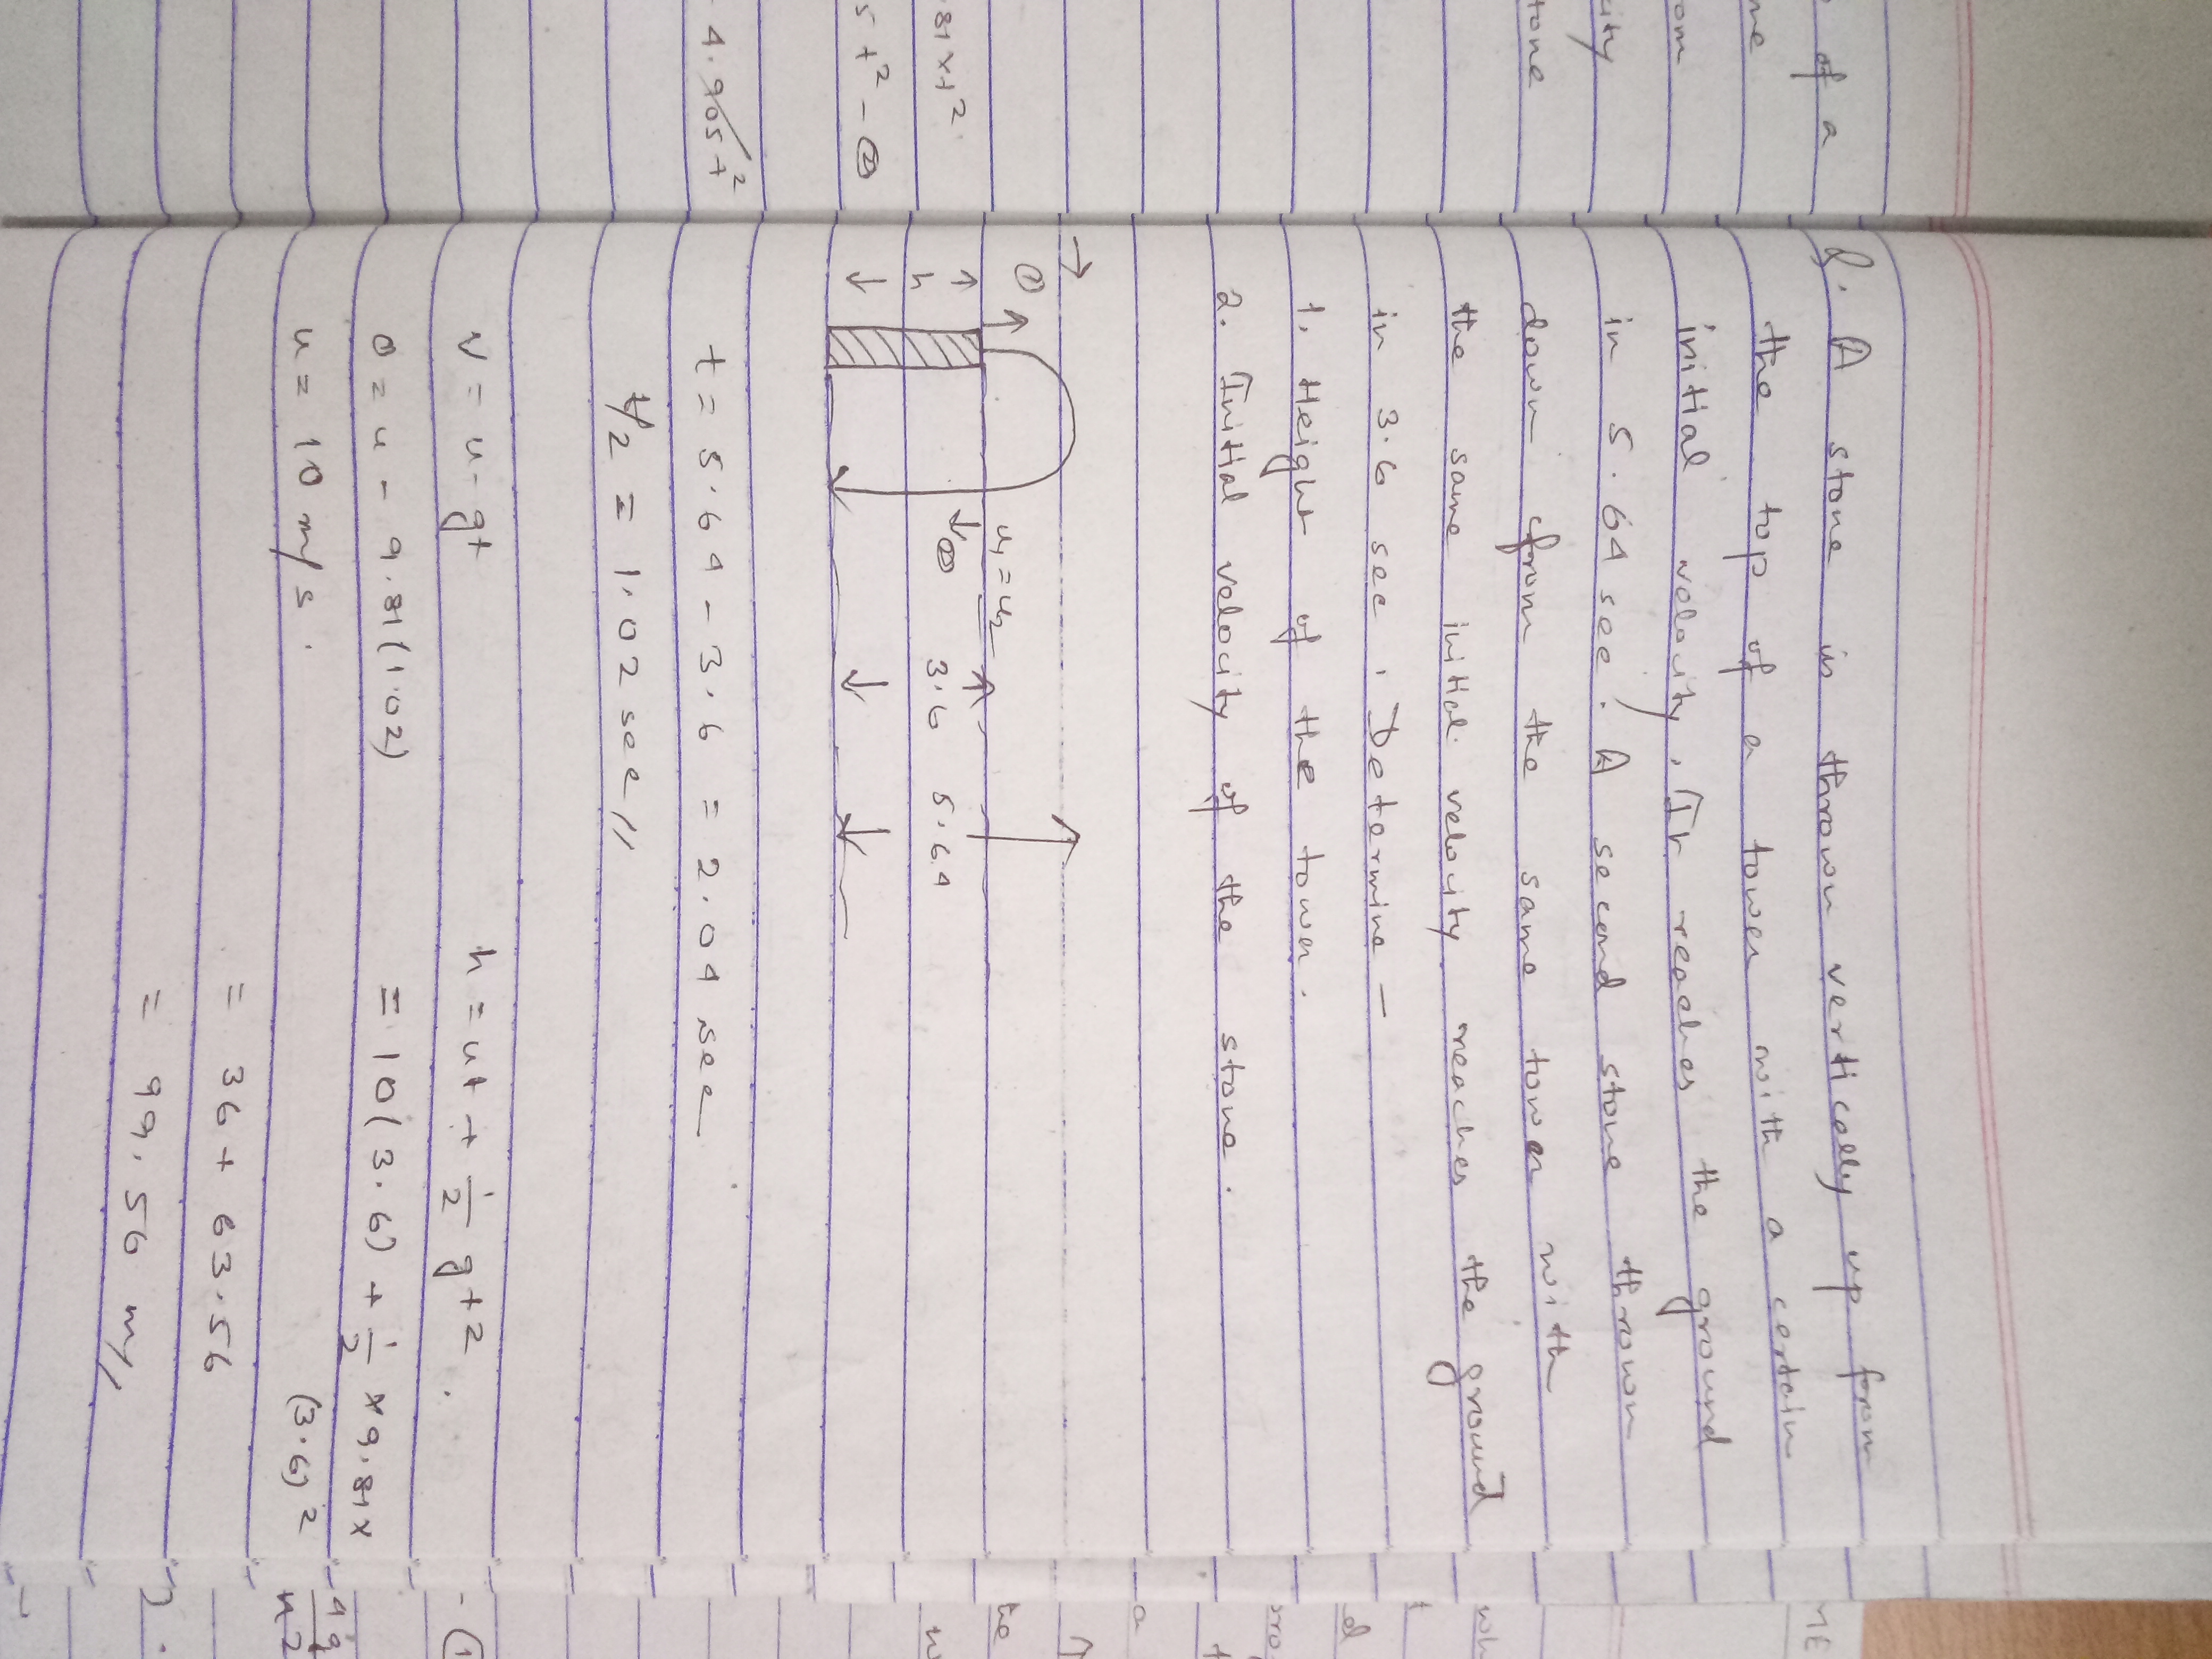 of a
me
om
city
tone
81 x t²
5 t² - ②
4.905 t²
Q. A stone is thrown vertically up from
the top of a tower with a certain
initial velocity. It reaches the ground
in 5.64 sec. A second stone thrown
down from the same tower with
the same initial velocity reaches the ground
in 3.6 sec. Determine -
1. Height of the tower.
2. Initial velocity of the stone.
→
① ↑
u₁ = u₂
↓②
↑ h ↓
3.6 5.64
t = 5.64 - 3.6 = 2.04 sec
t/2 = 1.02 sec //
v = u - gt
0 = u - 9.81 (1.02)
u = 10 m/s.
h = ut + 1/2 gt2.
= 10(3.6) + 1/2 x 9.81 x
(3.6)²
= 36 + 63.56
= 99.56 m//
ME
wh
t
d
pro
a
the
w
- ①